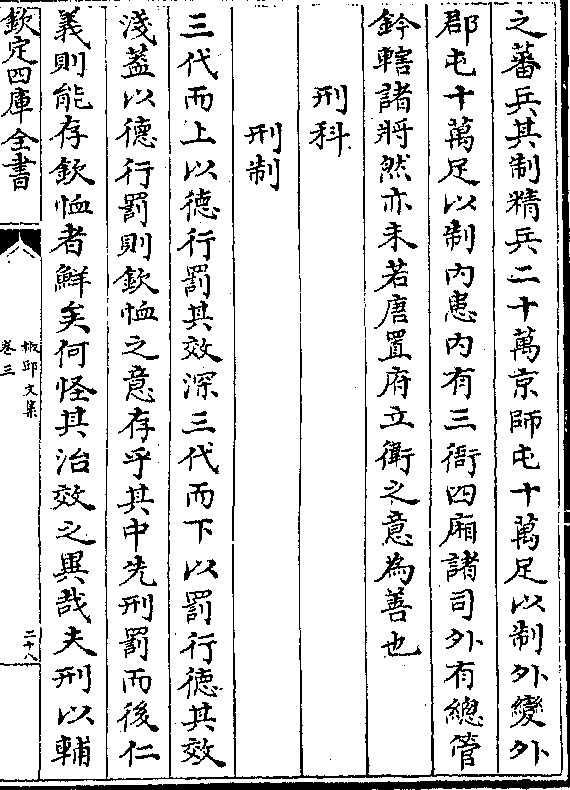 之蕃兵其制精兵二十萬京師屯十萬足以制外變外
郡屯十萬足以制內患內有三衙四廂諸司外有總管
鈐轄諸將然亦未若唐置府立衛之意為善也
刑科
刑制
三代而上以德行罰其效深三代而下以罰行德其效
淺蓋以德行罰則欽恤之意存乎其中先刑罰而後仁
義則能存欽恤者鮮矣何怪其治效之異哉夫刑以輔
欽定四庫全書
椒邱文集
卷三
二十八